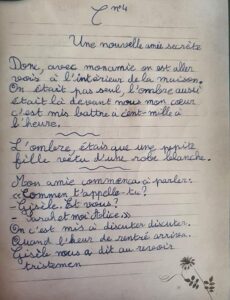 C n°4
Une nouvelle amie secrète
Donc, avec monamie on est aller
voir à l'intérieur de la maison.
On était pas seul, l'ombre aussi
était là devant nous mon cœur
c'est mis battre a cent-mille à
l'heure.
L'ombre, étais que une petite
fille vêtu d'une robe blanche.
Mon amie commença à parler:
«Commen t'appelle-tu?
- Gisèle. Et vous?
- Sarah et moi Alice.»
On c'est mis à discuter discuter.
Quand l'heur de rentré arriva.
Gisèle nous a dit au revoir
tristemen